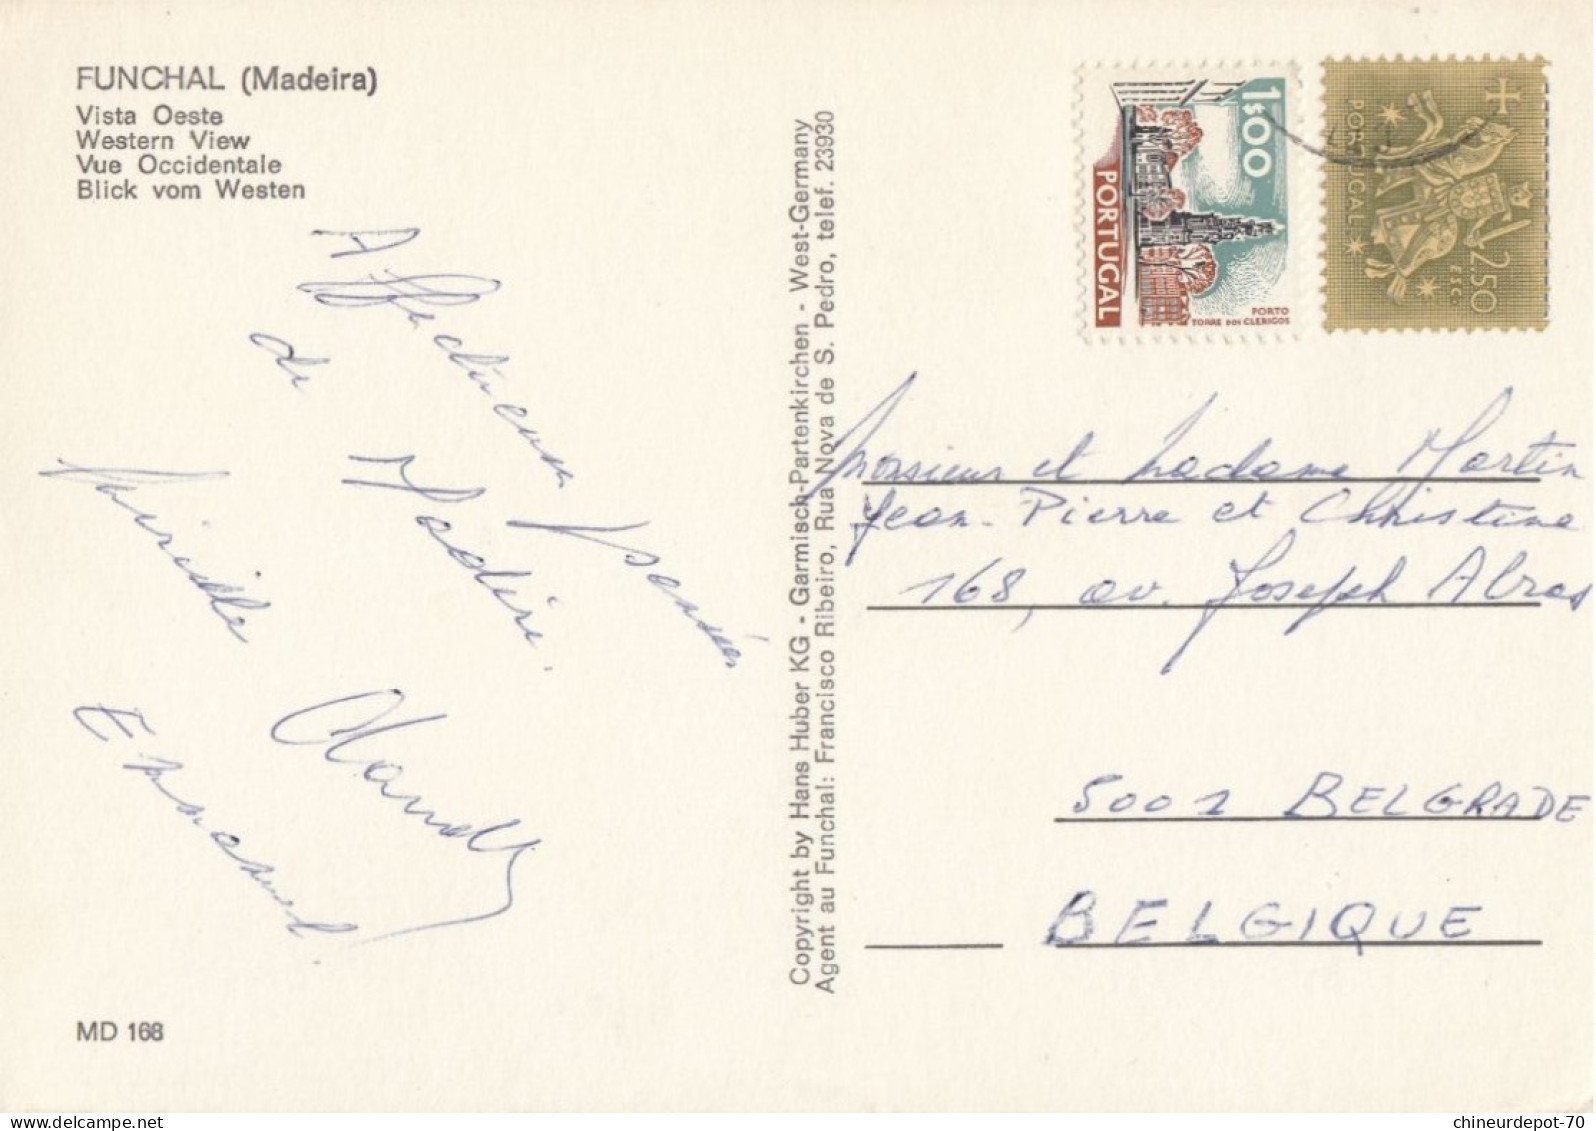 FUNCHAL (Madeira)
Vista Oeste
Western View
Vue Occidentale
Blick vom Westen
Affectueuses pensées
de Madère.
Mireille
Emmanuel
MD 168
Copyright by Hans Huber KG - Garmisch-Partenkirchen - West-Germany
Agent au Funchal: Francisco Ribeiro, Rua Nova de S. Pedro, telef. 23930
1$00
PORTUGAL
PORTO
TORRE DOS CLERIGOS
PORTUGAL
2.50
ESC.
Monsieur et Madame Martin
Jean-Pierre et Christine
168, av. Joseph Abras
5001 BELGRADE
BELGIQUE
chineurdepot-70